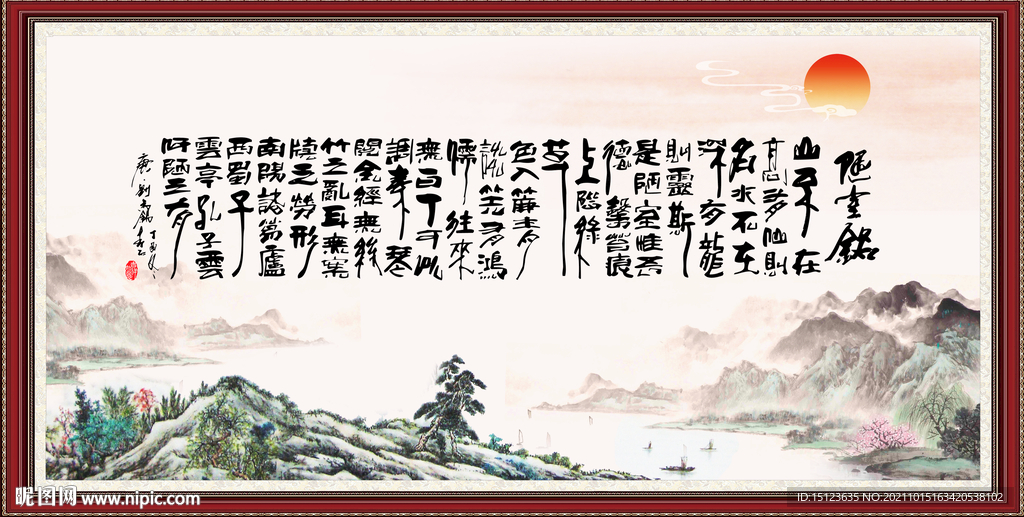 陋室銘
山不在
高有仙則
名水不在
深有龍
則靈斯
是陋室惟吾
德馨苔痕
上階綠
草
色入簾青
談笑有鴻
儒往來
無白丁可以
調素琴
閱金經無絲
竹之亂耳無案
牘之勞形
南陽諸葛廬
西蜀子
雲亭孔子雲
何陋之有
唐劉禹錫丁酉
昵图网 www.nipic.com
ID:15123635 NO:20211015163420538102